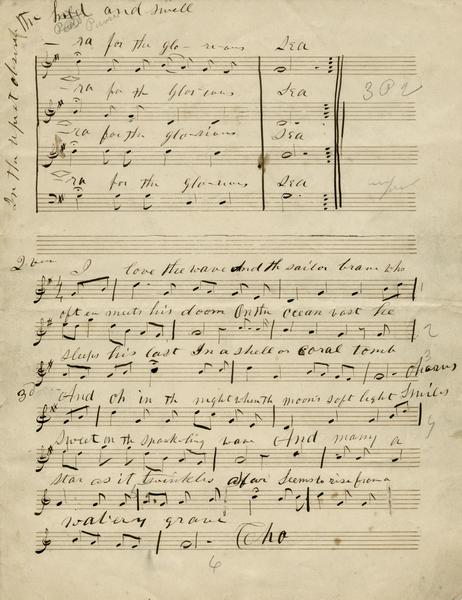 In the repeat observe
the hold and swell
ra for the glo-rious Sea
ra for the Glo-rious Sea
3 P 2
ra for the glo-rious Sea
ra for the glo-rious Sea
2 ver
I love the wave And the sailor brave who
1
oft en meets his doom On the ocean vast he
2
sleeps his last In a shell or coral tomb
3
Chorus
3d And oh in the night when the moon's soft light Smiles
4
Sweet on the Sparkeling wave And many a
star as it twinkles afar Seems to rise from a
watery grave
Cho
6